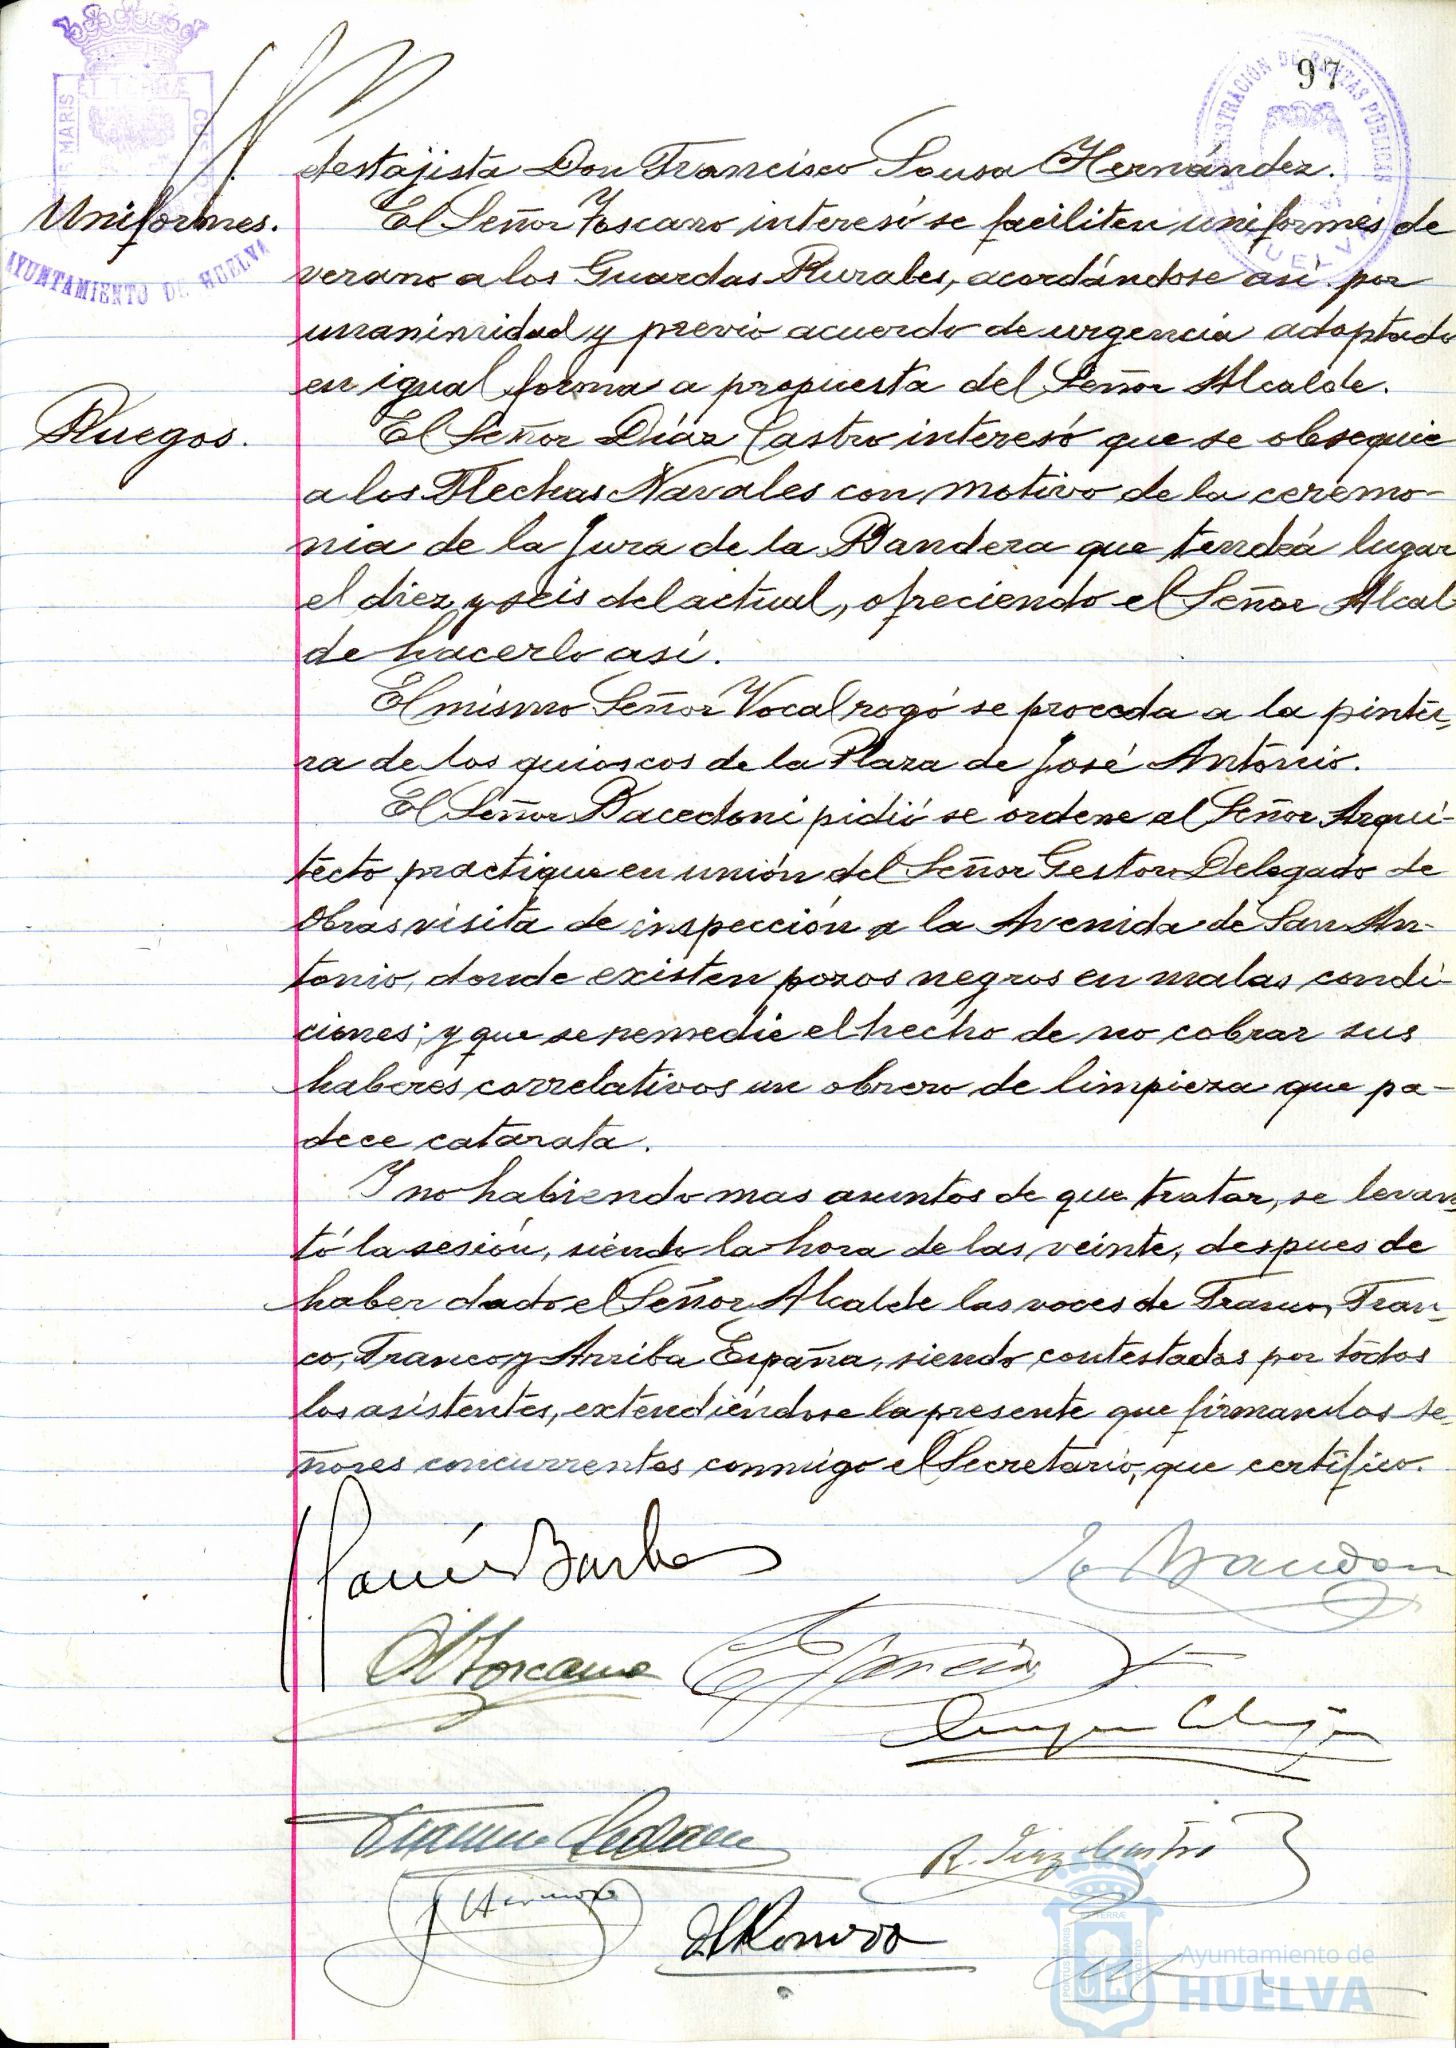 97
destajista Don Francisco Sousa Hernández.
Uniformes.
El Señor Toscano interesó se faciliten uniformes de
verano a los Guardas Rurales, acordándose así por
unanimidad y previo acuerdo de urgencia adoptado
en igual forma a propuesta del Señor Alcalde.
Ruegos.
El Señor Díaz Castro interesó que se obsequie
a los Flechas Navales con motivo de la ceremo-
nia de la Jura de la Bandera que tendrá lugar
el diez y seis del actual, ofreciendo el Señor Alcal
de hacerlo así.
El mismo Señor Vocal rogó se proceda a la pintu-
ra de los quioscos de la Plaza de José Antonio.
El Señor Bacedoni pidió se ordene al Señor Arqui-
tecto practique en unión del Señor Gestor Delegado de
Obras visita de inspección a la Avenida de San An-
tonio, donde existen pozos negros en malas condi-
ciones; y que se remedie el hecho de no cobrar sus
haberes correlativos un obrero de limpieza que pa-
dece catarata.
Y no habiendo mas asuntos de que tratar, se levan-
tó la sesión, siendo la hora de las veinte, despues de
haber dado el Señor Alcalde las voces de Franco, Fran-
co, Franco y Arriba España, siendo contestadas por todos
los asistentes, extendiéndose la presente que firman los se-
ñores concurrentes conmigo el Secretario, que certifico.
Toscano
García
R. Díaz Castro
Romero
AYUNTAMIENTO DE HUELVA
Ayuntamiento de
HUELVA